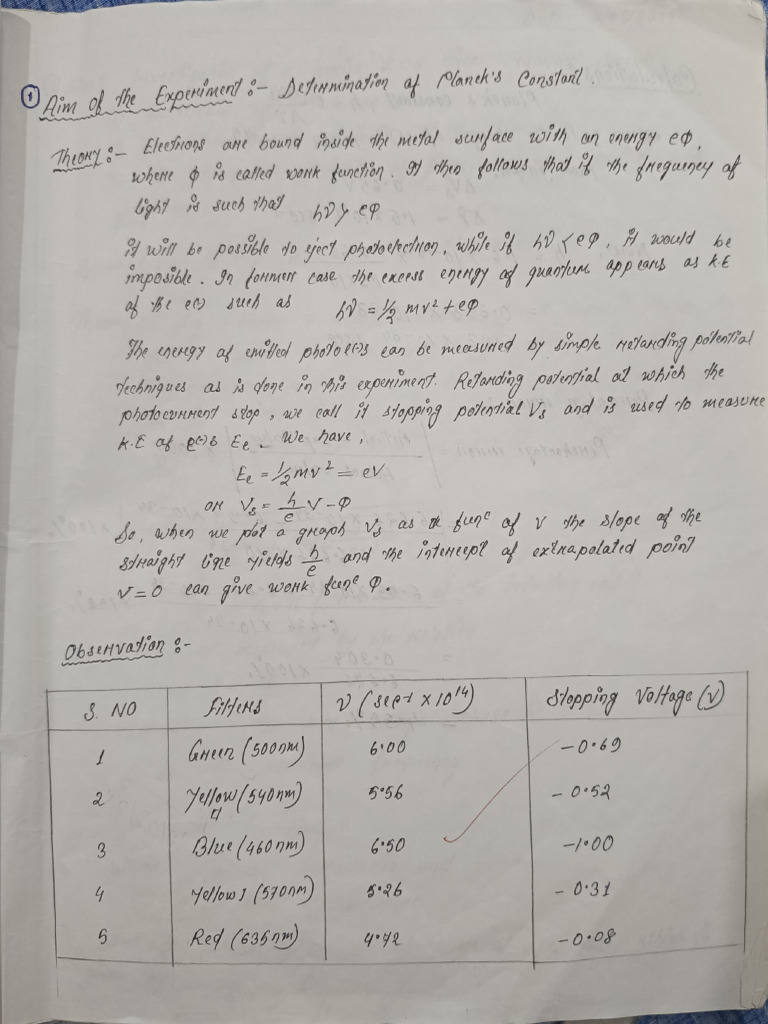 ① Aim of the Experiment :- Determination of Planck's Constant.
Theory :- Electrons are bound inside the metal surface with an energy eΦ,
where Φ is called work function. It then follows that if the frequency of
light is such that hν > eΦ
it will be possible to eject photoelectron, while if hν < eΦ, it would be
impossible. In former case the excess energy of quantum appears as K.E
of the e(-) such as hν = 1/2 mv² + eΦ
The energy of emitted photo e(-)s can be measured by simple retarding potential
techniques as is done in this experiment. Retarding potential at which the
photocurrent stop, we call it stopping potential Vs and is used to measure
K.E of e(-)s Ee. We have,
Ee = 1/2 mv² = eV
or Vs = h/e V - Φ
So, when we plot a graph Vs as func of V the slope of the
straight line yields h/e and the intercept of extrapolated point
V = 0 can give work func Φ.
Observation :-
S. NO Filters ν (sec⁻¹ × 10¹⁴) Stopping Voltage (V)
1 Green (500nm) 6.00 -0.69
2 Yellow (540nm) 5.56 -0.52
3 Blue (460nm) 6.50 -1.00
4 Yellow 1 (570nm) 5.26 -0.31
5 Red (635nm) 4.72 -0.08